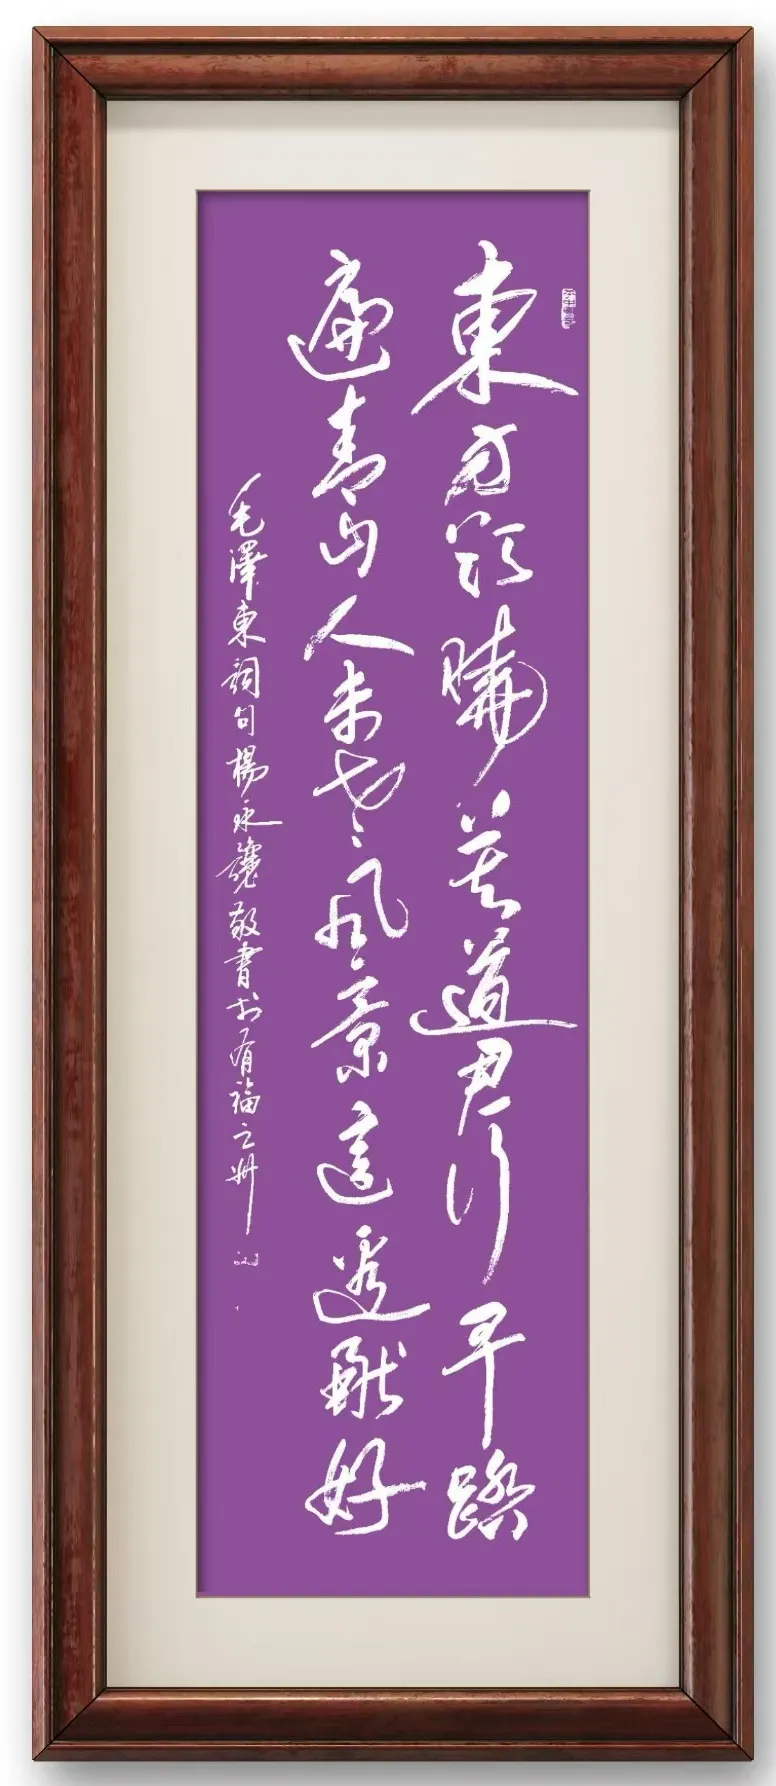 東方欲曉莫道君行早踏
遍青山人未老風景這邊獨好
毛澤東詞句楊永敬書於有福之州